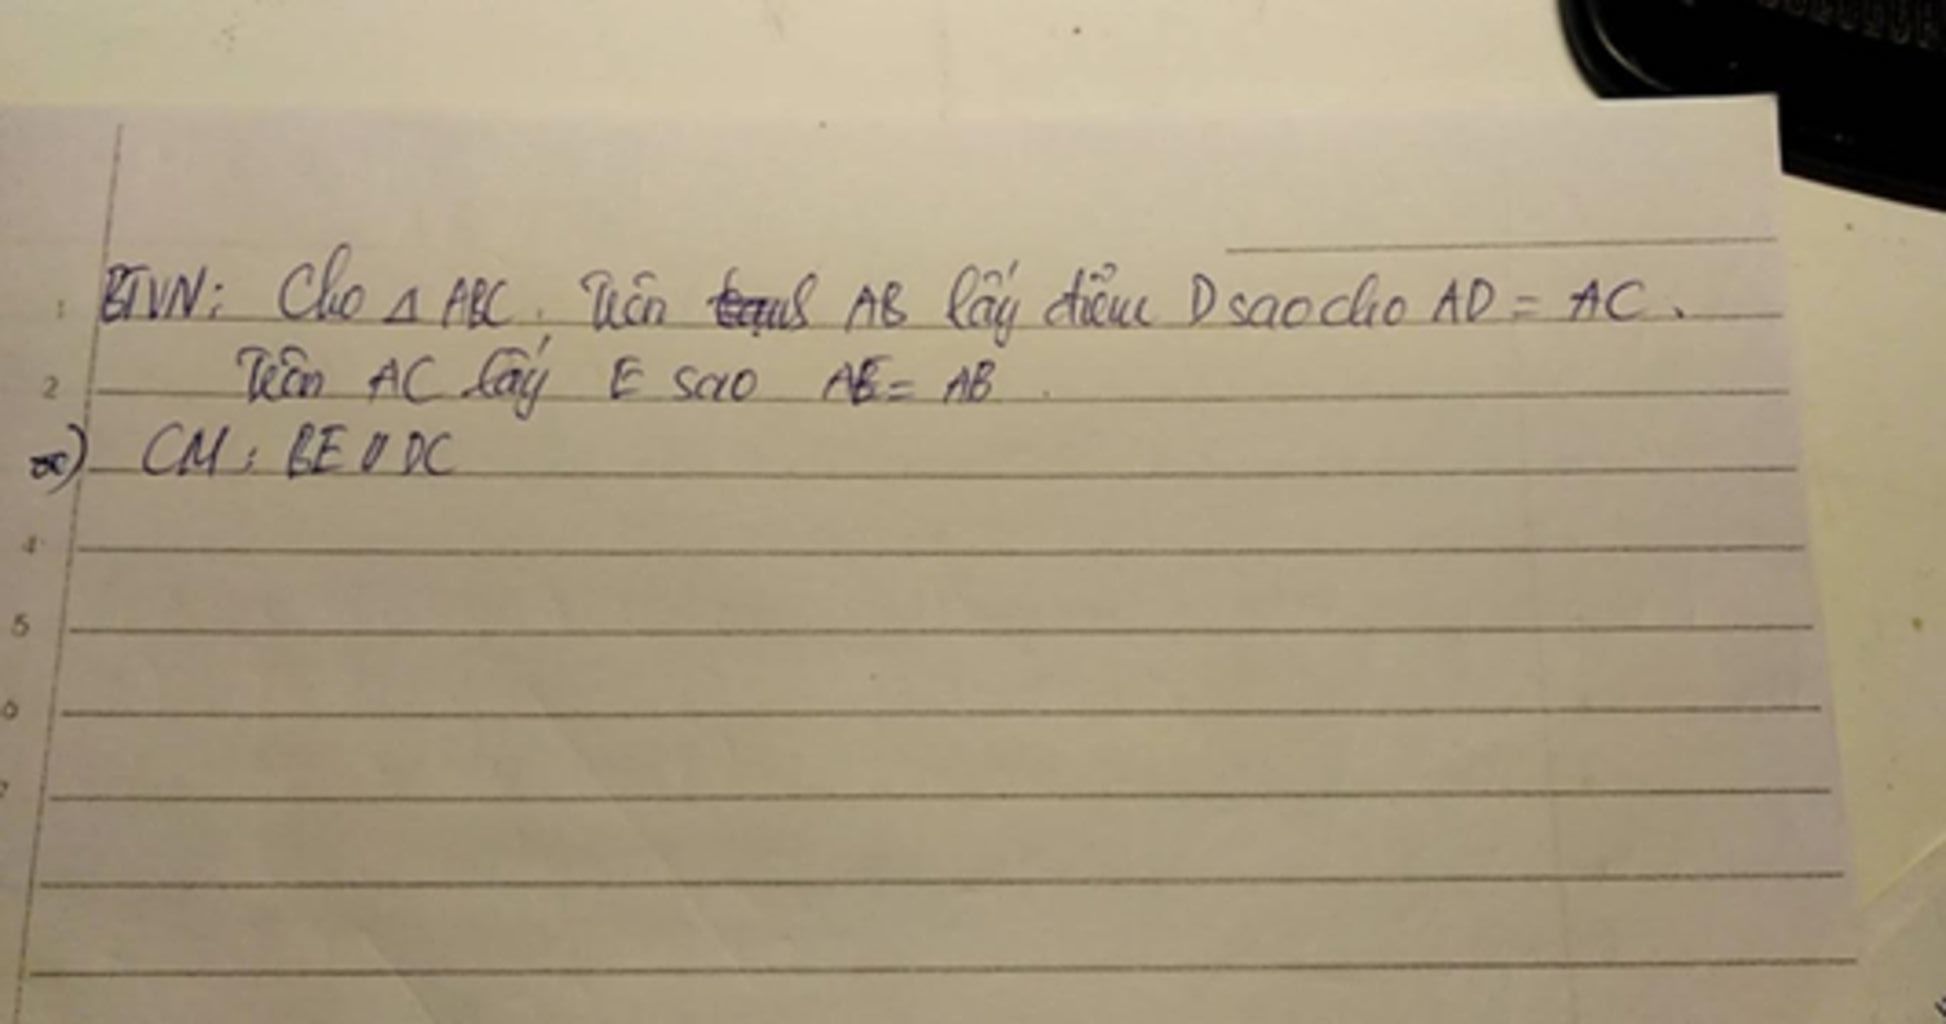 BTVN: Cho Δ ABC. Trên AB lấy điểm D sao cho AD = AC.
Trên AC lấy E sao AE = AB.
CM: BE // DC
1
2
4
5
6
7